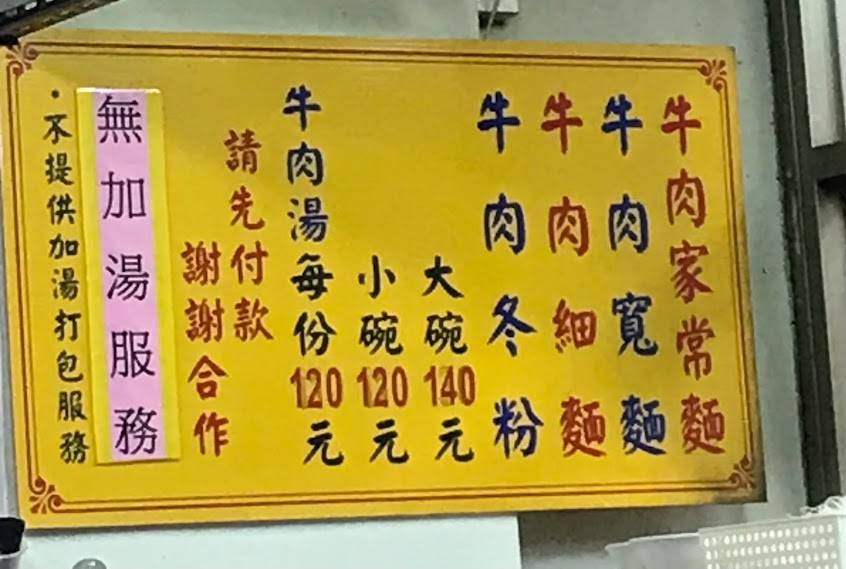 牛肉家常麵
牛肉寬麵
牛肉細麵
牛肉冬粉
大碗140元
小碗120元
牛肉湯每份120元
請先付款
謝謝合作
無加湯服務
·不提供加湯打包服務